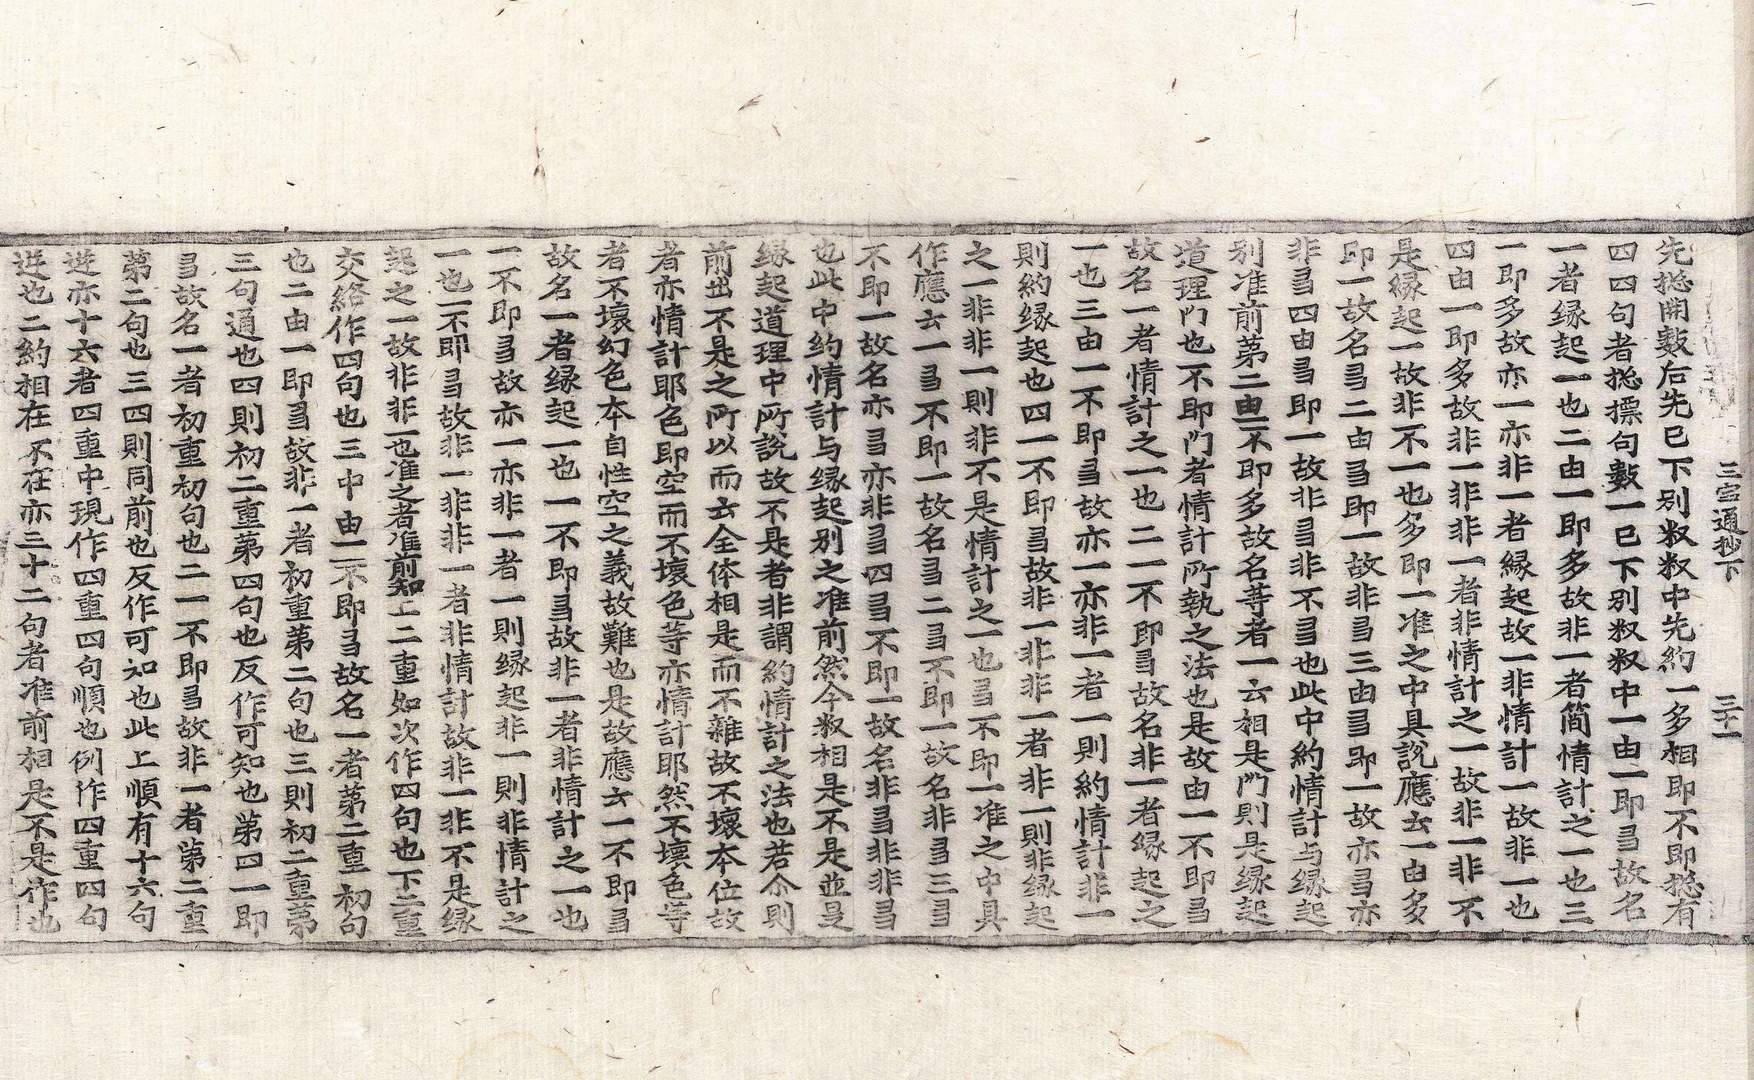 三宝通抄下 三十一
先揔開數后先已下别叙叙中先約一多相即不即揔有
四四句者揔摽句數一已下别叙叙中一由一即多故名
一者縁起一也二由一即多故非一者简情計之一也三
一即多故亦一亦非一者縁起故一非情計一故非一也
四由一即多故非一非非一者非情計之一故非一非不
是縁起一故非不一也多即一准之中具說應云一由多
即一故名多二由多即一故非多三由多即一故亦多亦
非多四由多即一故非多非不多也此中約情計与縁起
别准前第二由一不即多故名等者一云相是門則是縁起
道理門也不即門者情計所執之法也是故由一不即多
故名一者情計之一也二一不即多故名非一者縁起之
一也三由一不即多故亦一亦非一者一則約情計非一
則約縁起也四一不即多故非一非非一者非一則非縁起
之一非非一則非不是情計之一也多不即一准之中具
作應云一多不即一故名多二多不即一故名非多三多
不即一故名亦多亦非多四多不即一故名非多非非多
也此中约情計与縁起别之准前然今叙相是不是並是
縁起道理中所說故不是者非謂約情計之法也若尒則
前出不是之所以而云全体相是而不雜故不壞本位故
者亦情計耶色即空而不壞色等亦情計耶然不壞色等
者不壞幻色本自性空之義故難也是故應云一不即多
故名一者縁起一也一不即多故非一者非情計之一也
一不即多故亦一亦非一者一則縁起非一則非情計之
一也一不即多故非一非非一者非情計故非一非不是縁
起之一故非非一也准之者准前知上二重如次作四句也下二重
交絡作四句也三中由一不即多故名一者第二重初句
也二由一即多故非一者初重第二句也三則初二重第
三句通也四則初二重第四句也反作可知也第四一即
多故名一者初重初句也二一不即多故非一者第二重
第二句也三四則同前也反作可知也此上順有十六句
逆亦十六者四重中現作四重四句順也例作四重四句
逆也二約相在不在亦三十二句者准前相是不是作也